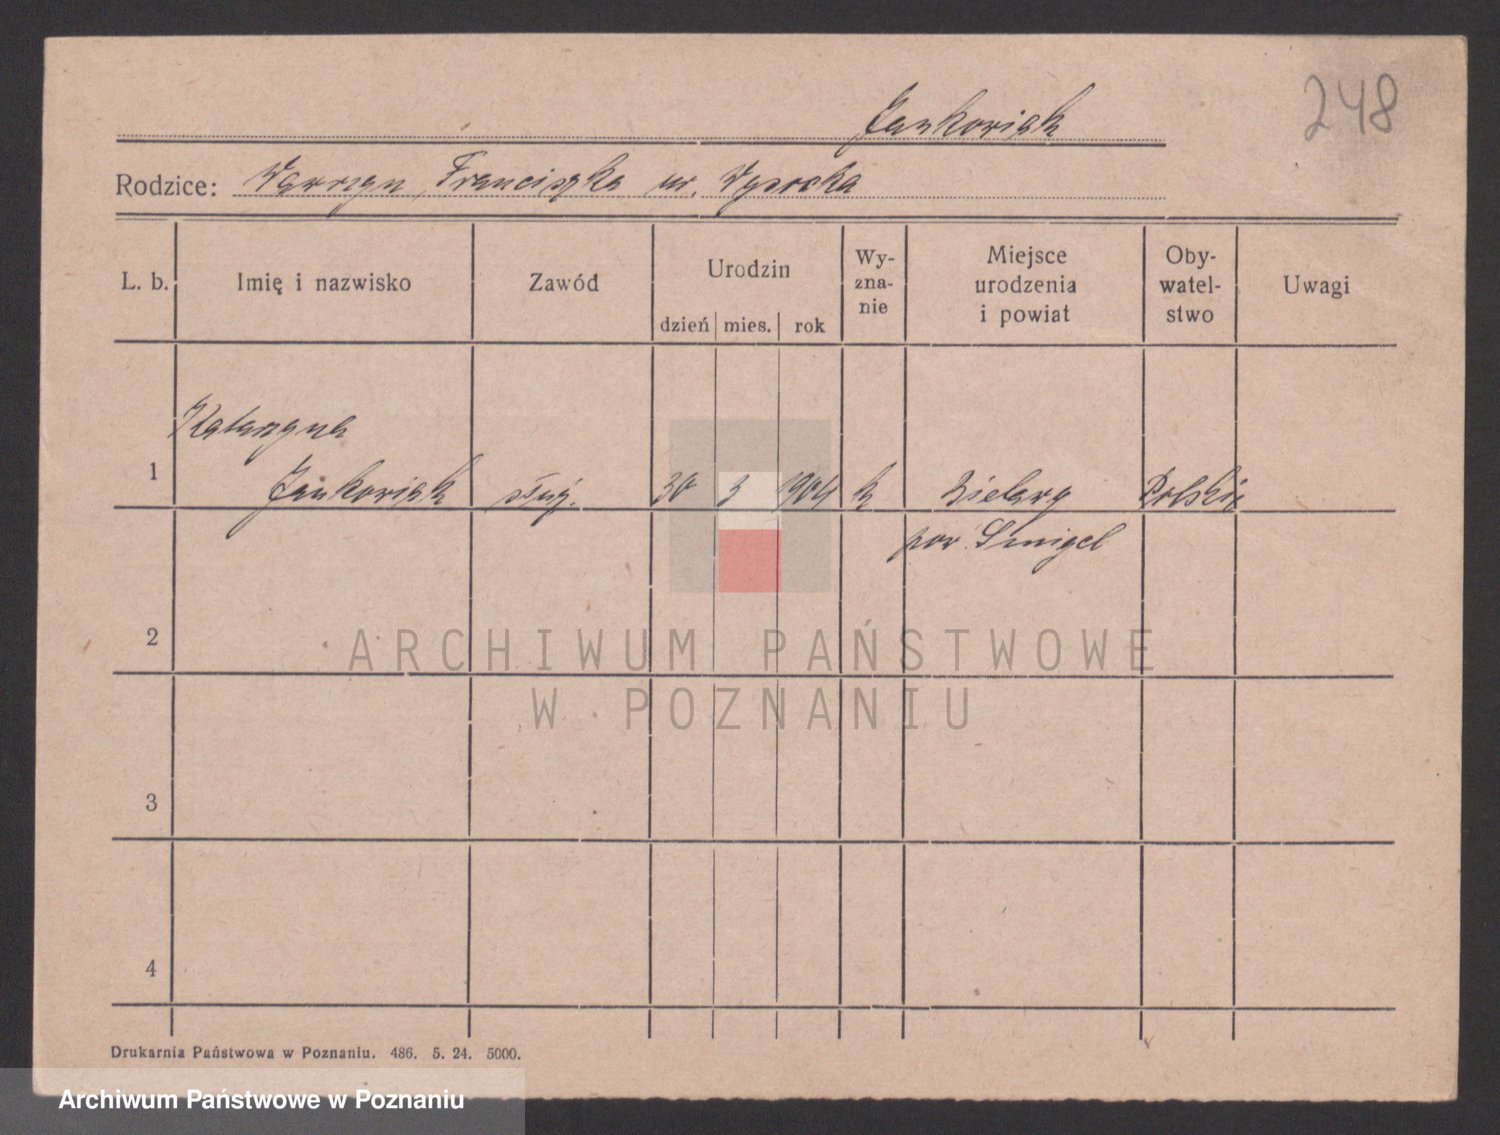 248
Jankowiak
Rodzice: Wawrzyn, Franciszka ur. Wysocka
L. b. Imię i nazwisko Zawód Urodzin dzień mies. rok Wy-zna-nie Miejsce urodzenia i powiat Oby-watel-stwo Uwagi
Katarzyna
1 Jankowiak służ. 30 3 1904 k Bielawy Polskie
pow. Śmigel
2
ARCHIWUM PAŃSTWOWE
W POZNANIU
3
4
Drukarnia Państwowa w Poznaniu. 486. 5. 24. 5000.
Archiwum Państwowe w Poznaniu